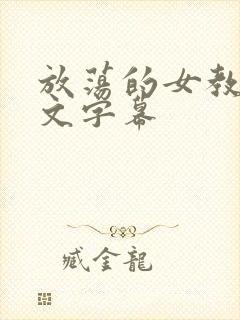 放荡的女教
文字幕
臧金龍